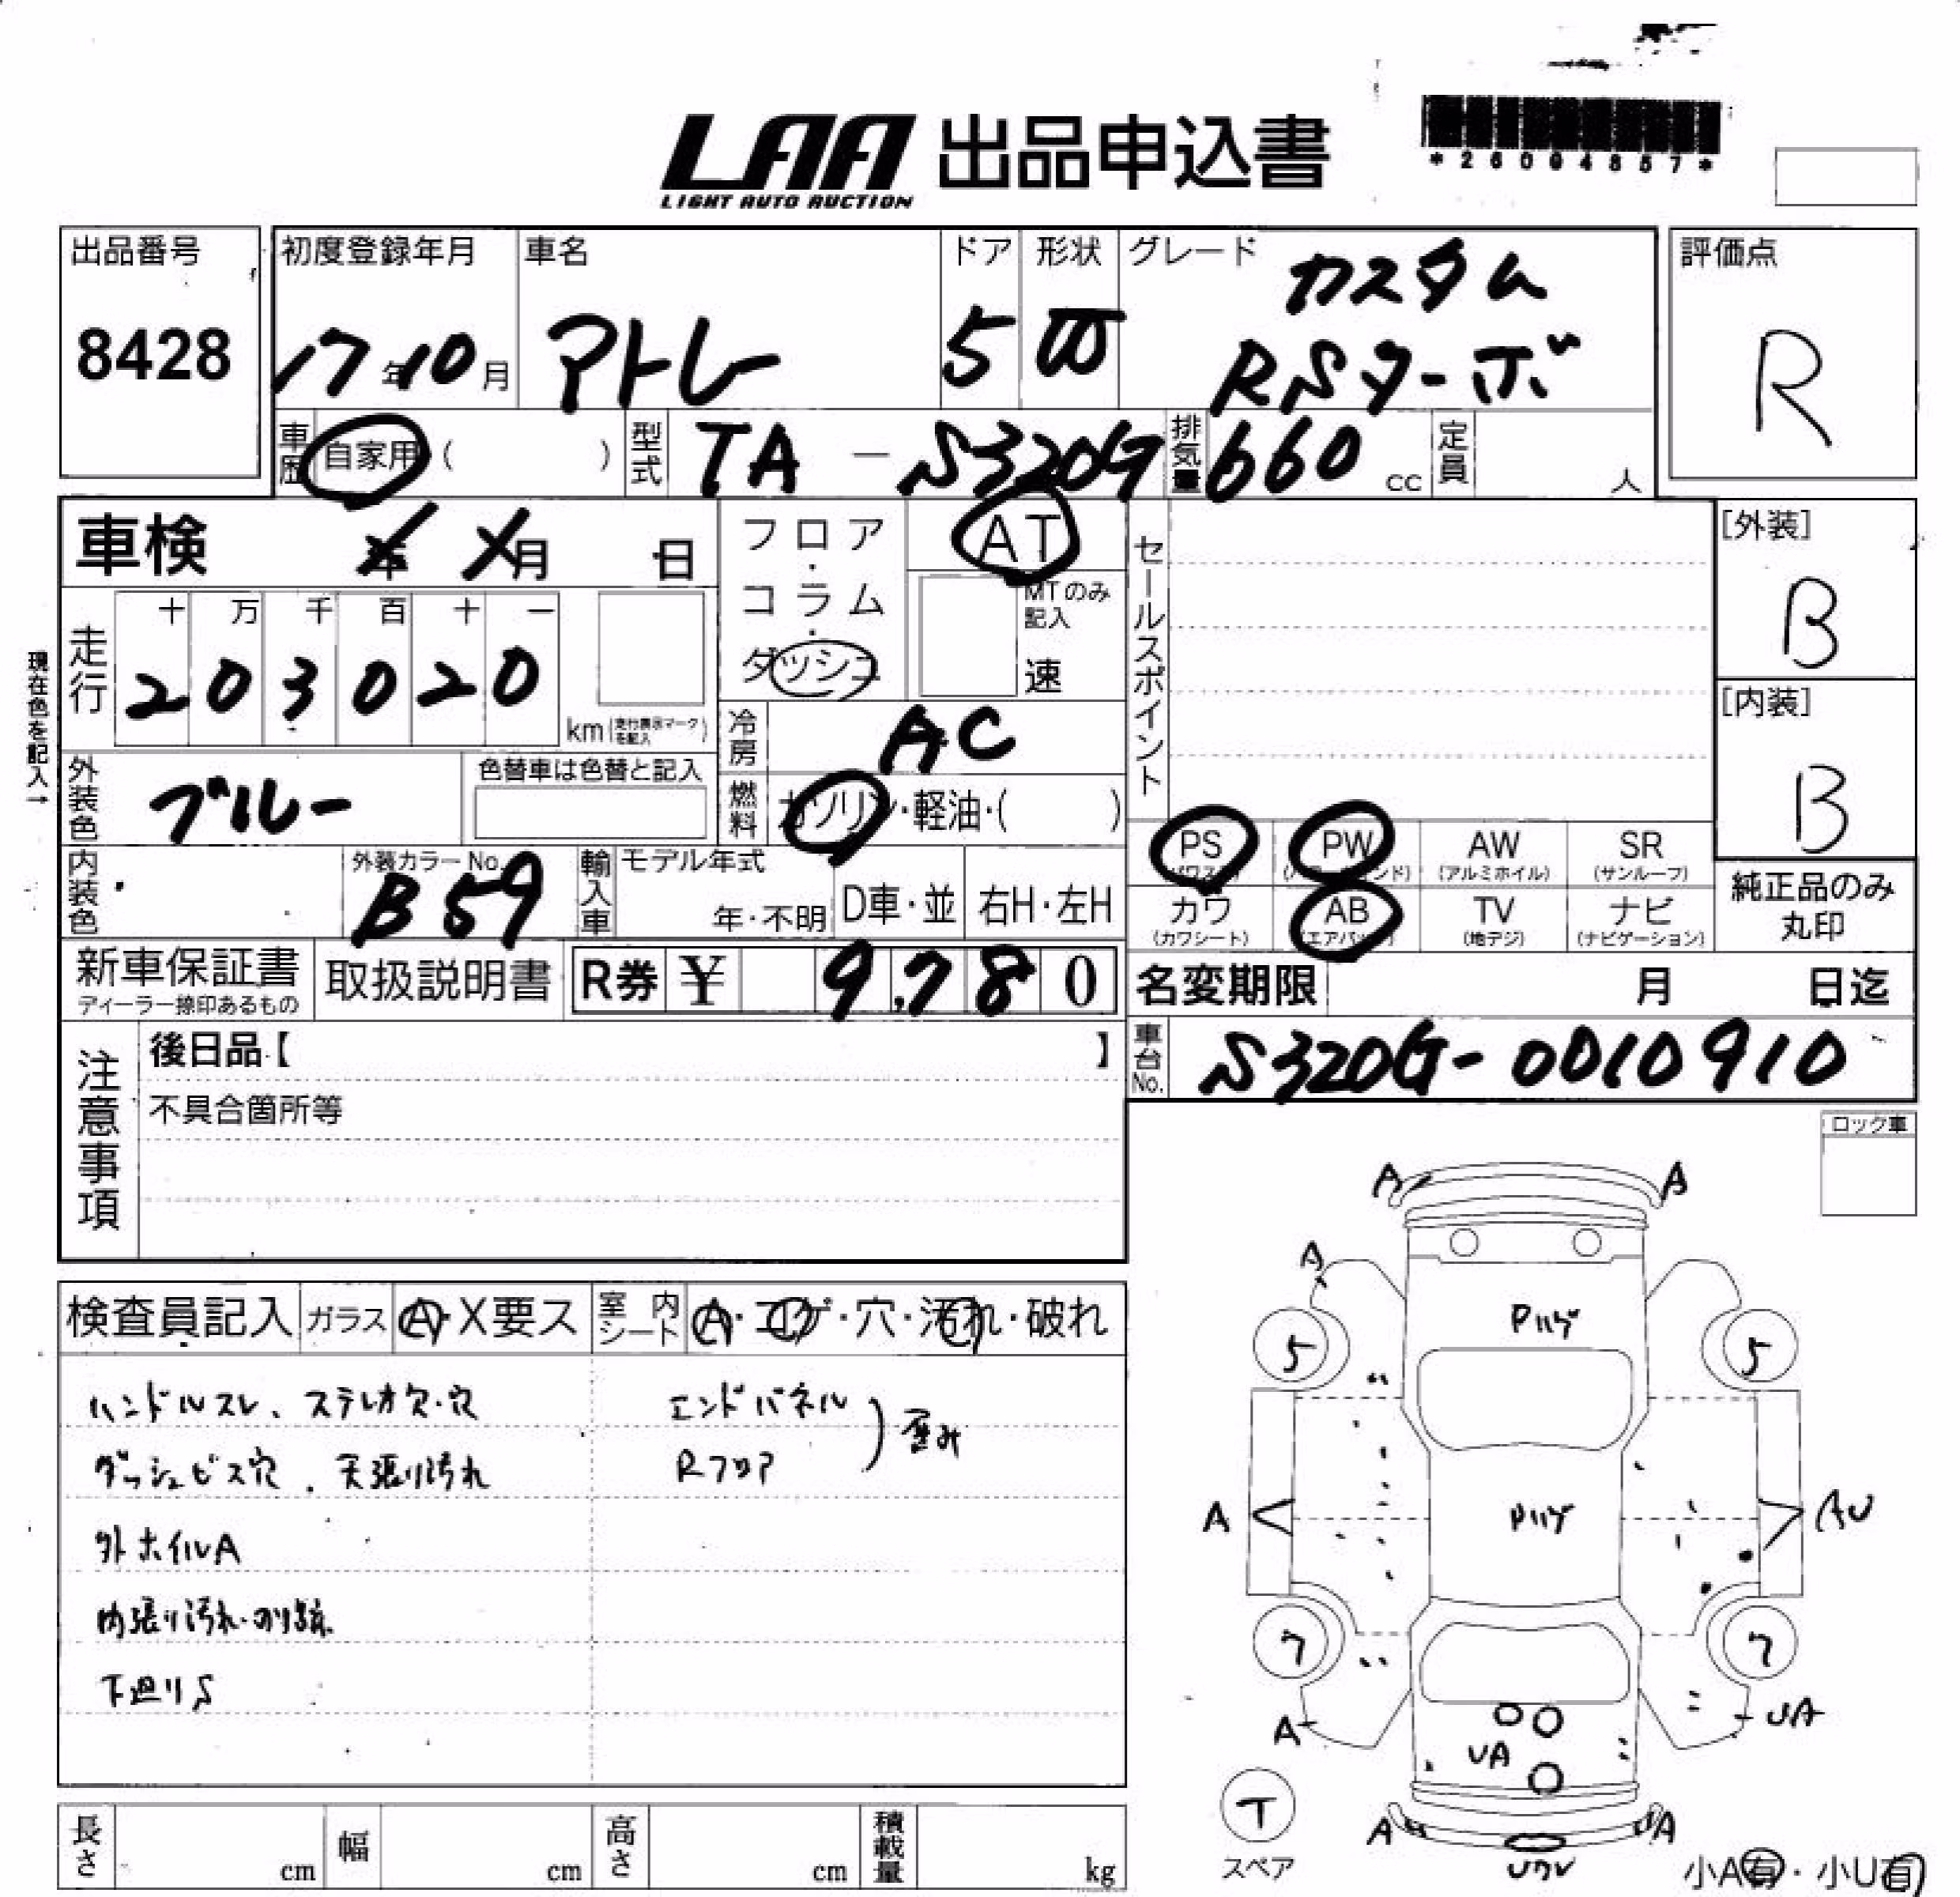 *26094857*
LAA 出品申込書
LIGHT AUTO AUCTION
出品番号
8428
初度登録年月
17年10月
車名
アトレー
ドア
5
形状
グレード
カスタム
RSターボ
評価点
R
車歴
自家用( )
型式
TA - S320G
排気量
660 cc
定員
人
車検
年 月 日
フロア・
コラム・
ダッシュ
AT
MTのみ
記入
速
セールスポイント
[外装]
B
[内装]
B
現在色を記入→
走行
十 万 千 百 十 一
2 0 3 0 2 0
km(走行表示マークを記入)
冷房
AC
外装色
ブルー
色替車は色替と記入
燃料
ガソリン・軽油・( )
PS PW AW SR
(パワステ) (パワーウインド) (アルミホイル) (サンルーフ)
カワ AB TV ナビ
(カワシート) (エアバック) (地デジ) (ナビゲーション)
純正品のみ
丸印
内装色
外装カラーNo.
B59
輸入車
モデル年式
年・不明
D車・並
右H・左H
新車保証書
ディーラー捺印あるもの
取扱説明書
R券 ¥ 9,780
名変期限 月 日迄
車台No.
S320G-0010910
注意事項
後日品【 】
不具合箇所等
ロック車
検査員記入
ガラス
A・X要ス
室内シート
A・コゲ・穴・汚れ・破れ
ハンドルスレ、ステレオ欠・穴
ダッシュビス穴、天張り汚れ
外ホイルA
内張り汚れ・のり跡
下廻りS
エンドパネル
Rフロア
歪み
A A
A
Pハゲ
5 5
A Pハゲ AU
7 7
A UA UA
T
スペア
A A
小A有・小U有
長さ cm
幅 cm
高さ cm
積載量 kg